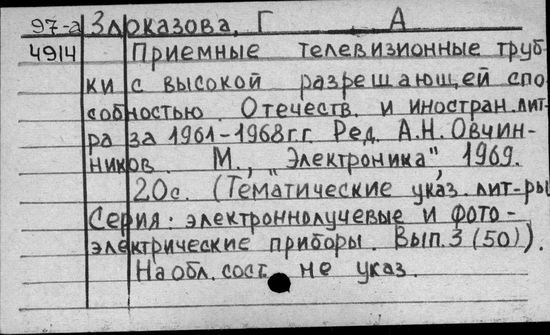 97-а Злоказова, Г А
4914 Приемные телевизионные труб-
ки с высокой разрешающей спо-
собностью. Отечеств. и иностран. лит-
ра за 1961-1968гг. Ред. А.Н. Овчин-
ников. М., "Электроника", 1969.
20с. (Тематические указ. лит-ры
Серия: электроннолучевые и фото-
электрические приборы. Вып. 3 (50)).
На обл. сост. не указ.